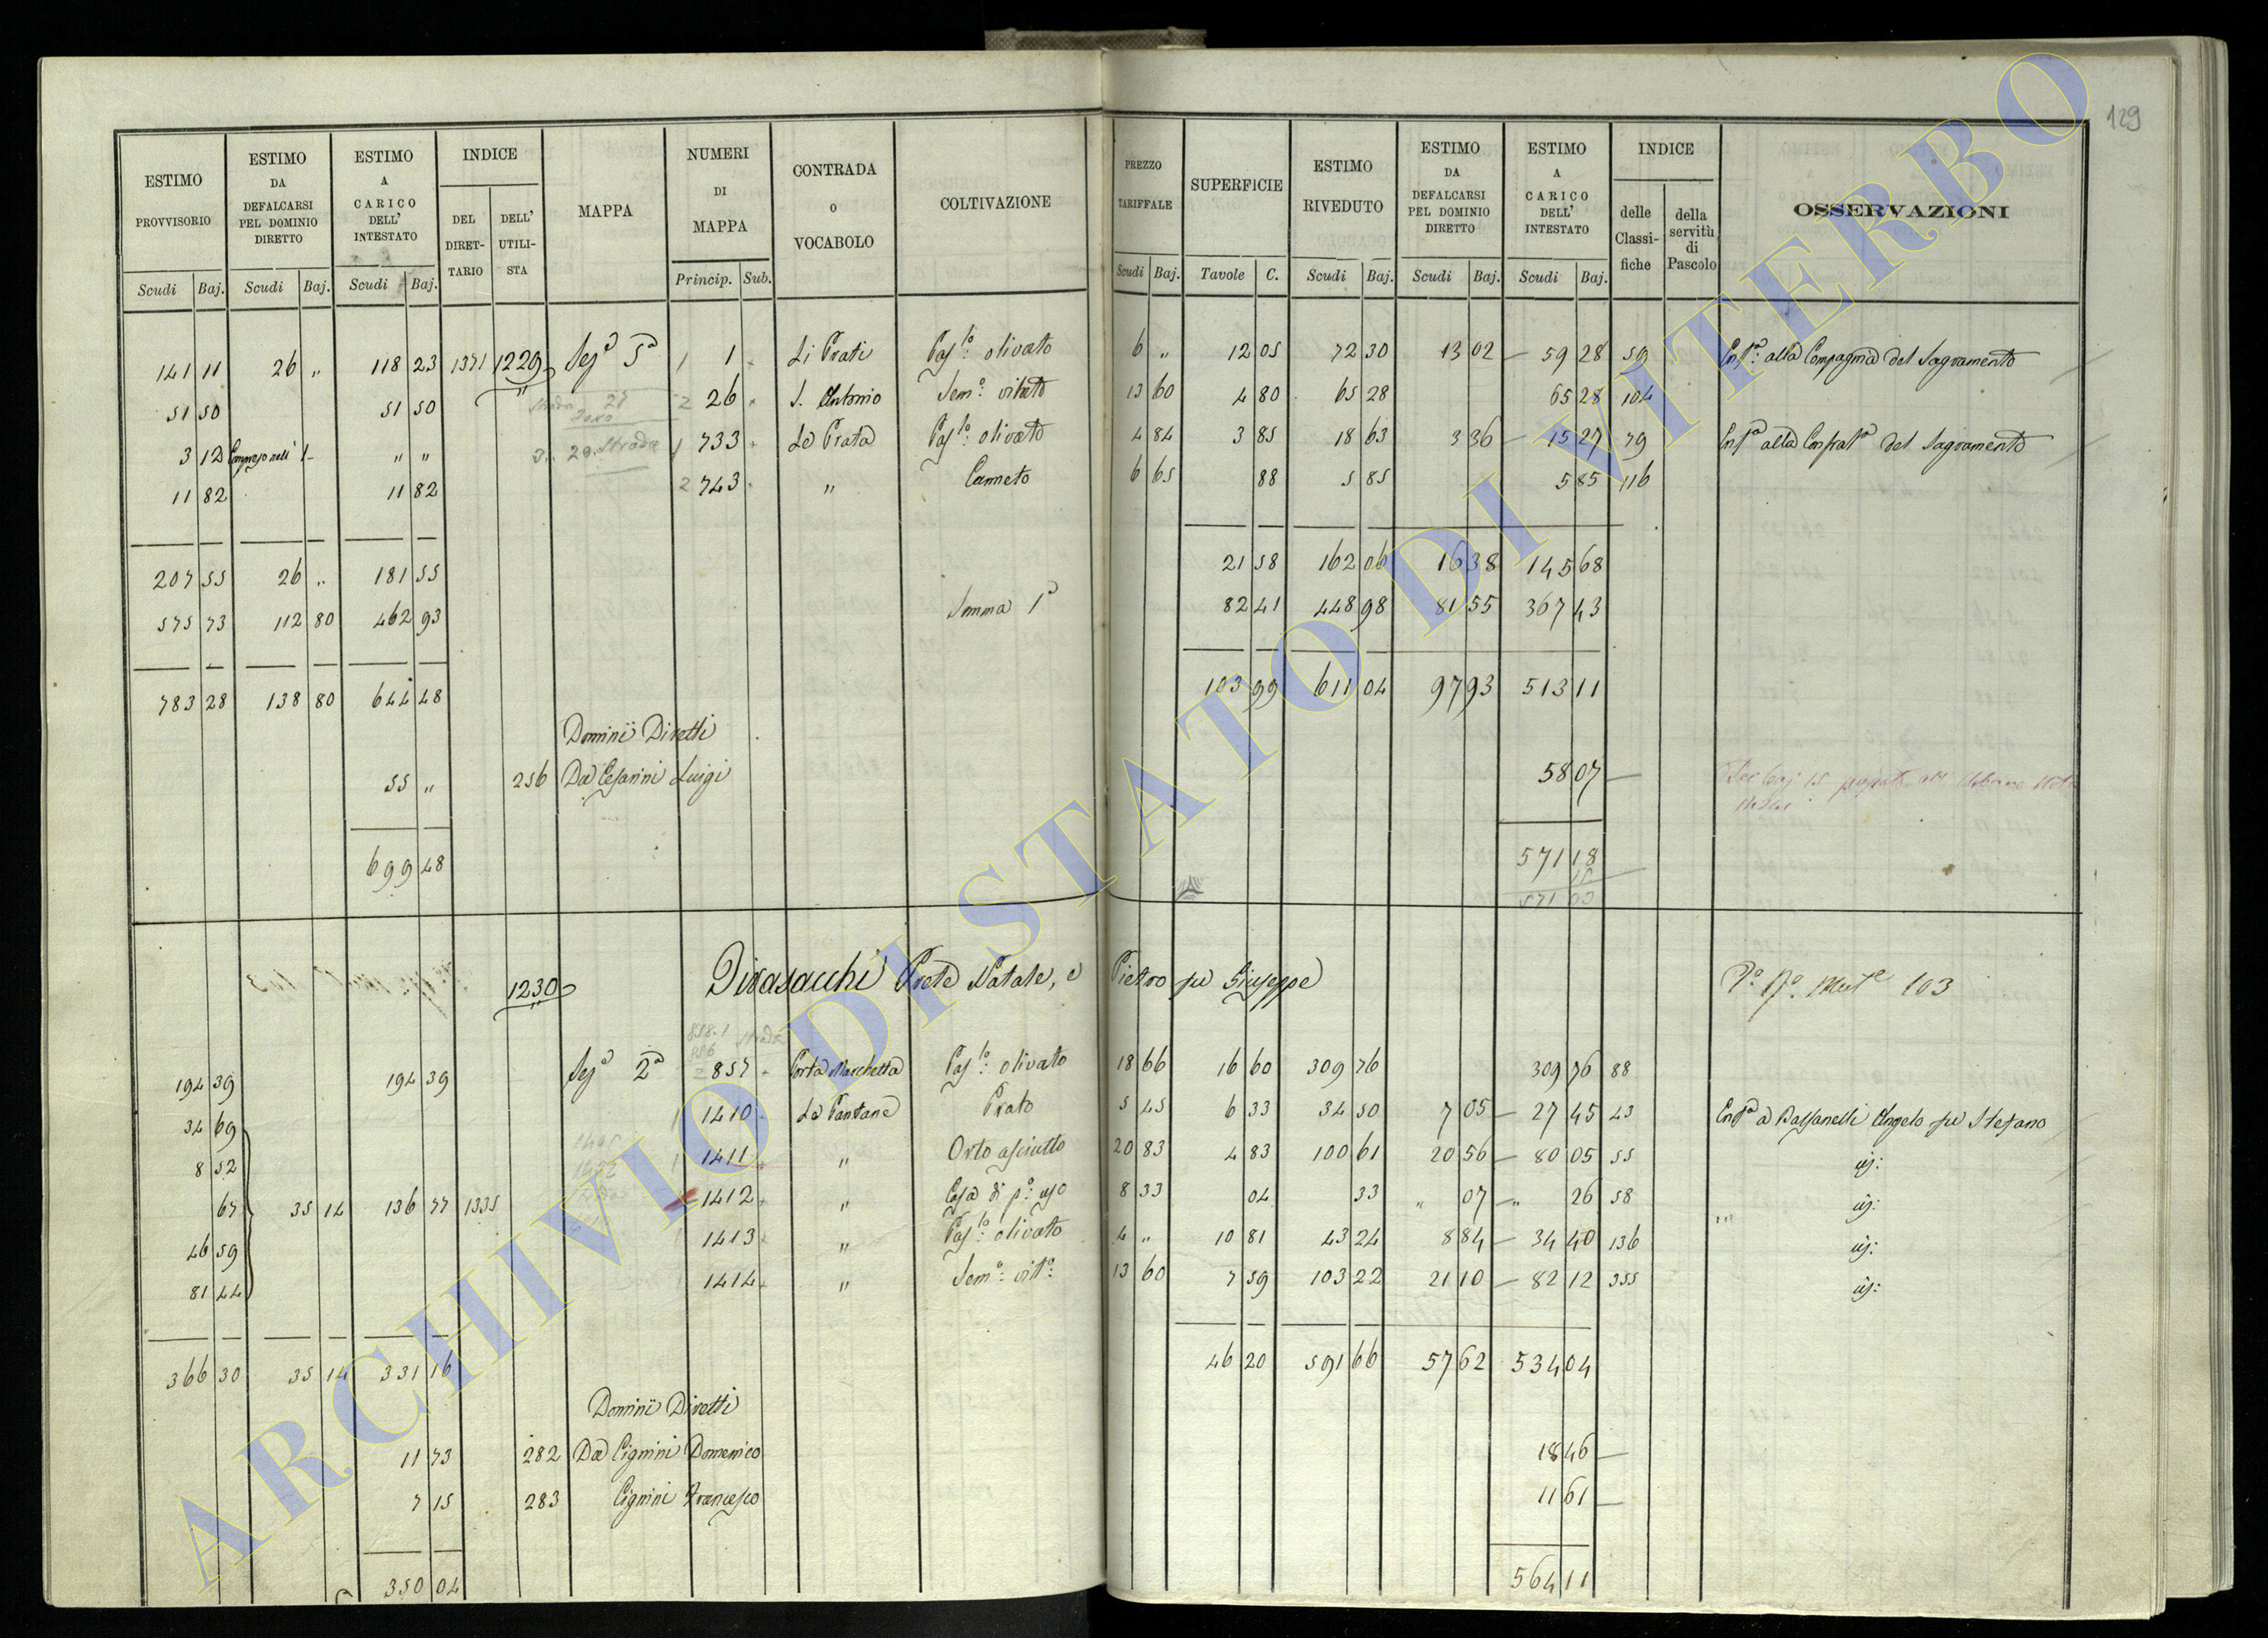 129
ESTIMO PROVVISORIO | ESTIMO DA DEFALCARSI PEL DOMINIO DIRETTO | ESTIMO A CARICO DELL' INTESTATO | INDICE | MAPPA | NUMERI DI MAPPA | CONTRADA O VOCABOLO | COLTIVAZIONE | PREZZO TARIFFALE | SUPERFICIE | ESTIMO RIVEDUTO | ESTIMO DA DEFALCARSI PEL DOMINIO DIRETTO | ESTIMO A CARICO DELL' INTESTATO | INDICE | OSSERVAZIONI
DEL DIRETTARIO | DELL' UTILISTA | delle Classifiche | della servitù di Pascolo
Scudi | Baj. | Scudi | Baj. | Scudi | Baj. | Princip. | Sub. | Scudi | Baj. | Tavole | C. | Scudi | Baj. | Scudi | Baj. | Scudi | Baj.
141 11 | 26 " | 118 23 | 1371 | 1229 | Sez.a 5a | 1 | Li Prati | Pas.lo: olivato | 6 " | 12 05 | 72 30 | 13 02 | 59 28 | 59 | Enf.a: alla Compagnia del Sagramento
51 50 | 51 50 | " | 26 | S. Antonio | Sem.o: vitato | 13 60 | 4 80 | 65 28 | 65 28 | 104
3 12 | Compreso nell' 1 | " " | 3. 20. Strada | 733 | La Prata | Pas.lo: olivato | 4 84 | 3 85 | 18 63 | 3 36 | 15 27 | 79 | Enf.a alla Confrat.a del Sagramento
11 82 | 11 82 | 743 | " | Canneto | 6 65 | 88 | 5 85 | 5 85 | 116
207 55 | 26 " | 181 55 | 21 58 | 162 06 | 16 38 | 145 68
575 73 | 112 80 | 462 93 | Somma 1a | 82 41 | 448 98 | 81 55 | 367 43
783 28 | 138 80 | 644 48 | 103 99 | 611 04 | 97 93 | 513 11
Dominii Diretti
55 " | 256 | Da Cesarini Luigi | 58 07
699 48 | 571 18
15
571 03
1230 | Pirasacchi Prete Natale, e Pietro fu Giuseppe | 103
194 39 | 194 39 | Sez.a 2a | 857 | Porta Marchetta | Pas.lo: olivato | 18 66 | 16 60 | 309 76 | 309 76 | 88
34 69 | 1410 | La Pantana | Prato | 5 45 | 6 33 | 34 50 | 7 05 | 27 45 | 43 | Enf.a a Balsanelli Angelo fu Stefano
8 52 | 1411 | " | Orto asciutto | 20 83 | 4 83 | 100 61 | 20 56 | 80 05 | 55 | id:
67 | 35 14 | 136 77 | 1335 | 1412 | " | Casa di p.o uso | 8 33 | 04 | 33 | " 07 | " 26 | 58 | id:
46 59 | 1413 | " | Pas.lo: olivato | 4 " | 10 81 | 43 24 | 8 84 | 34 40 | 136 | id:
81 44 | 1414 | " | Sem.o: vit.o: | 13 60 | 7 59 | 103 22 | 21 10 | 82 12 | 355 | id:
366 30 | 35 14 | 331 16 | 46 20 | 591 66 | 57 62 | 534 04
Dominii Diretti
11 73 | 282 | Da Cignini Domenico | 18 46
7 15 | 283 | Cignini Francesco | 11 61
350 04 | 564 11
ARCHIVIO DI STATO DI VITERBO